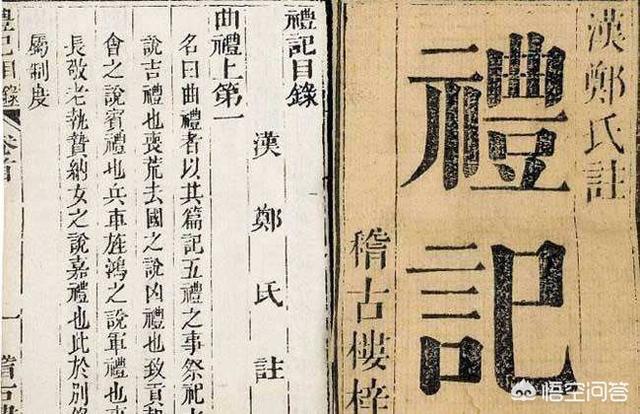 漢鄭氏註
禮記
稽古樓梓
禮記目錄
漢鄭氏註
曲禮上第一
名曰曲禮者以其篇記五禮之事祭祀
說吉禮也喪荒去國之說凶禮也致貢
會之說賓禮也兵車旌鴻之說軍禮也
長敬老執贄納女之說嘉禮也此於別錄
屬制度
禮記目錄 卷首 一 稽古樓
悟空问答